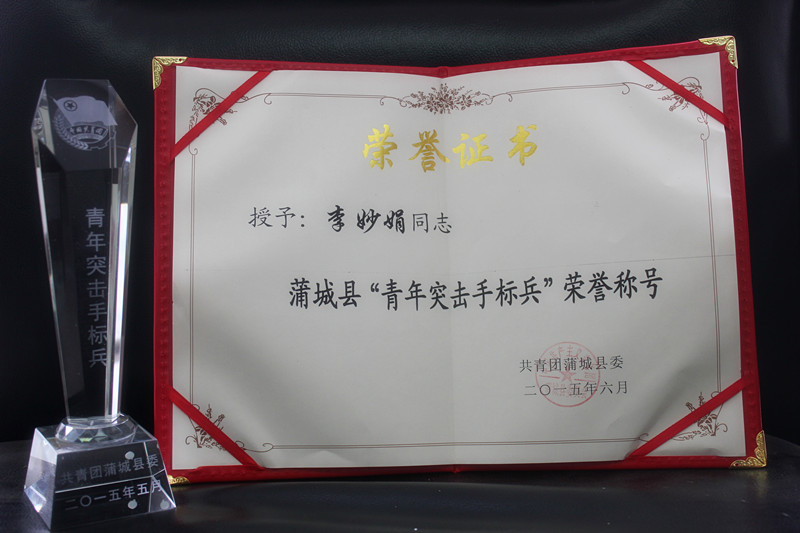 青年突击手标兵
共青团蒲城县委
二〇一五年五月
荣誉证书
授予：李妙娟同志
蒲城县“青年突击手标兵”荣誉称号
共青团蒲城县委
二〇一五年六月